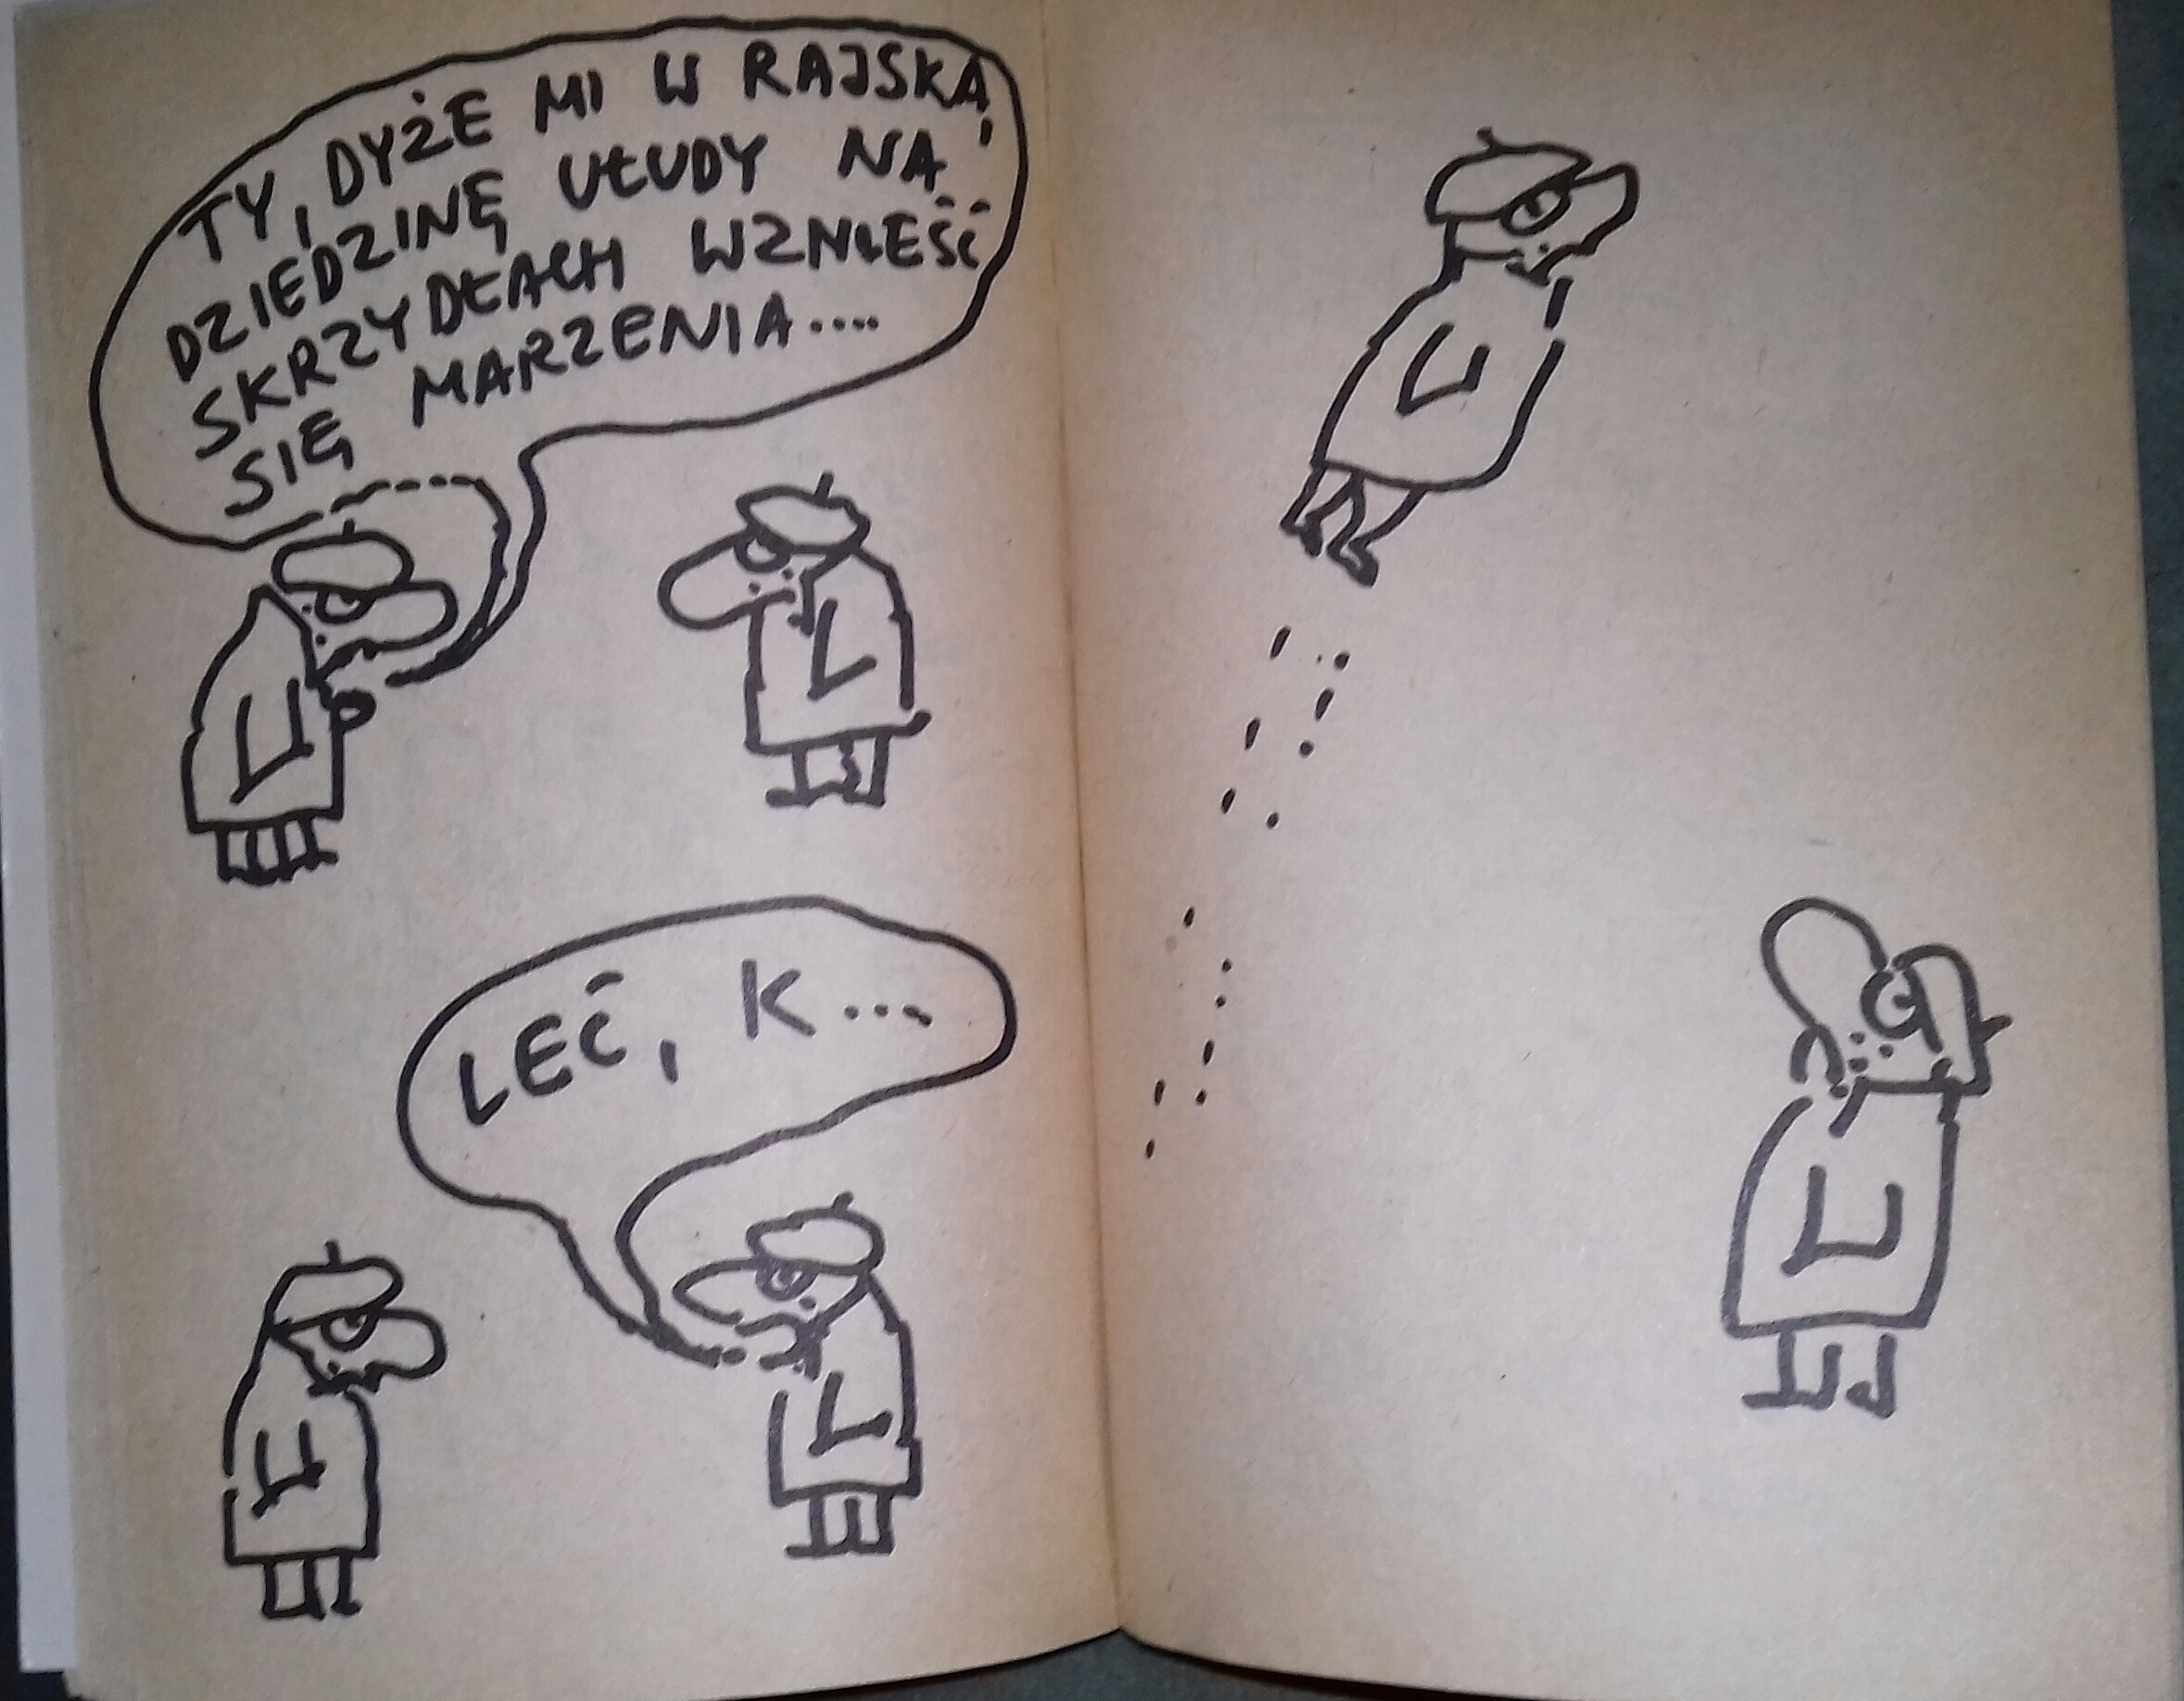 TY, DYŻE MI W RAJSKĄ
DZIEDZINĘ UŁUDY NA
SKRZYDŁACH WZNIEŚĆ
SIĘ MARZENIA....
LEĆ, K...